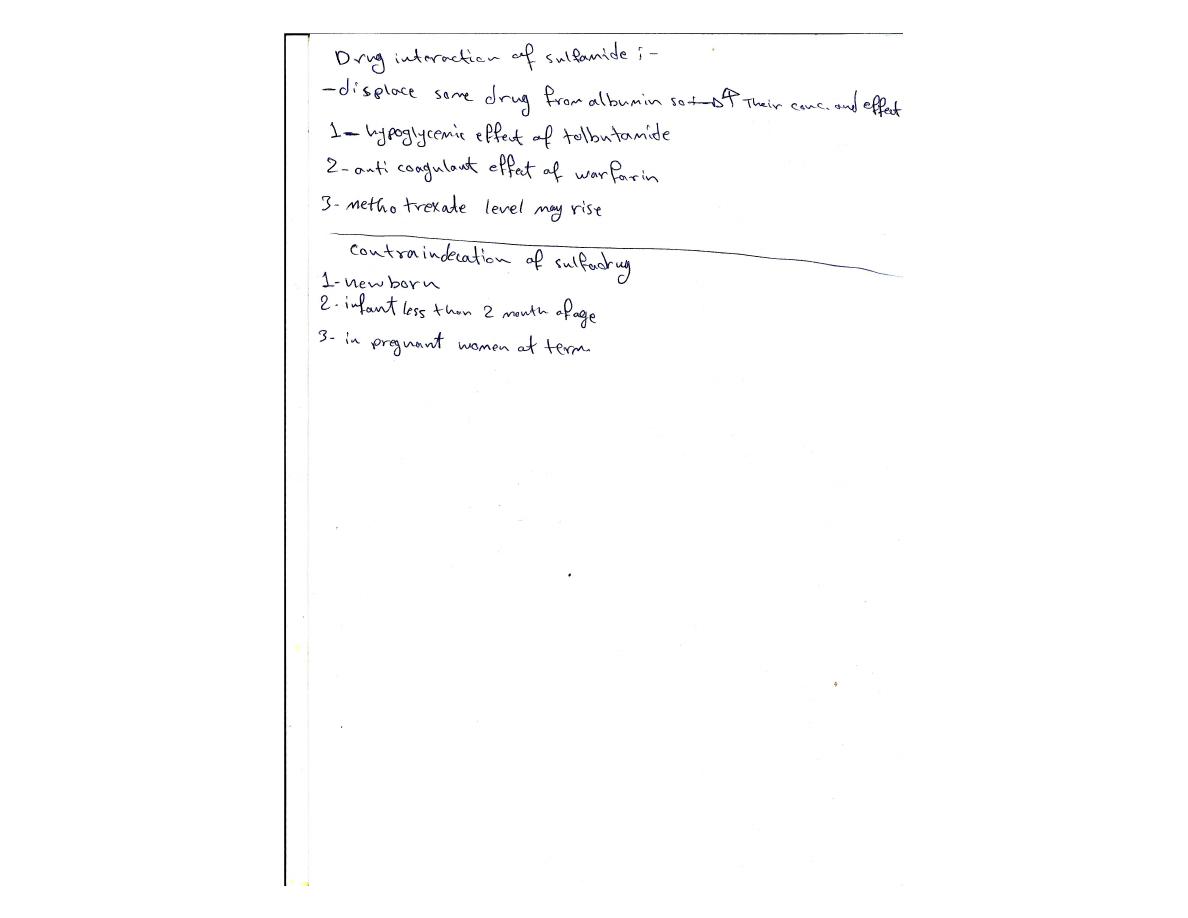 Drug interaction of sulfamide ; -
- displace some drug from albumin so → ↑ Their conc. and effect
1 - hypoglycemic effect of tolbutamide
2 - anti coagulant effect of warfarin
3 - metho trexate level may rise
Contraindecation of sulfadrug
1 - new born
2 - infant less than 2 month of age
3 - in pregnant women at term